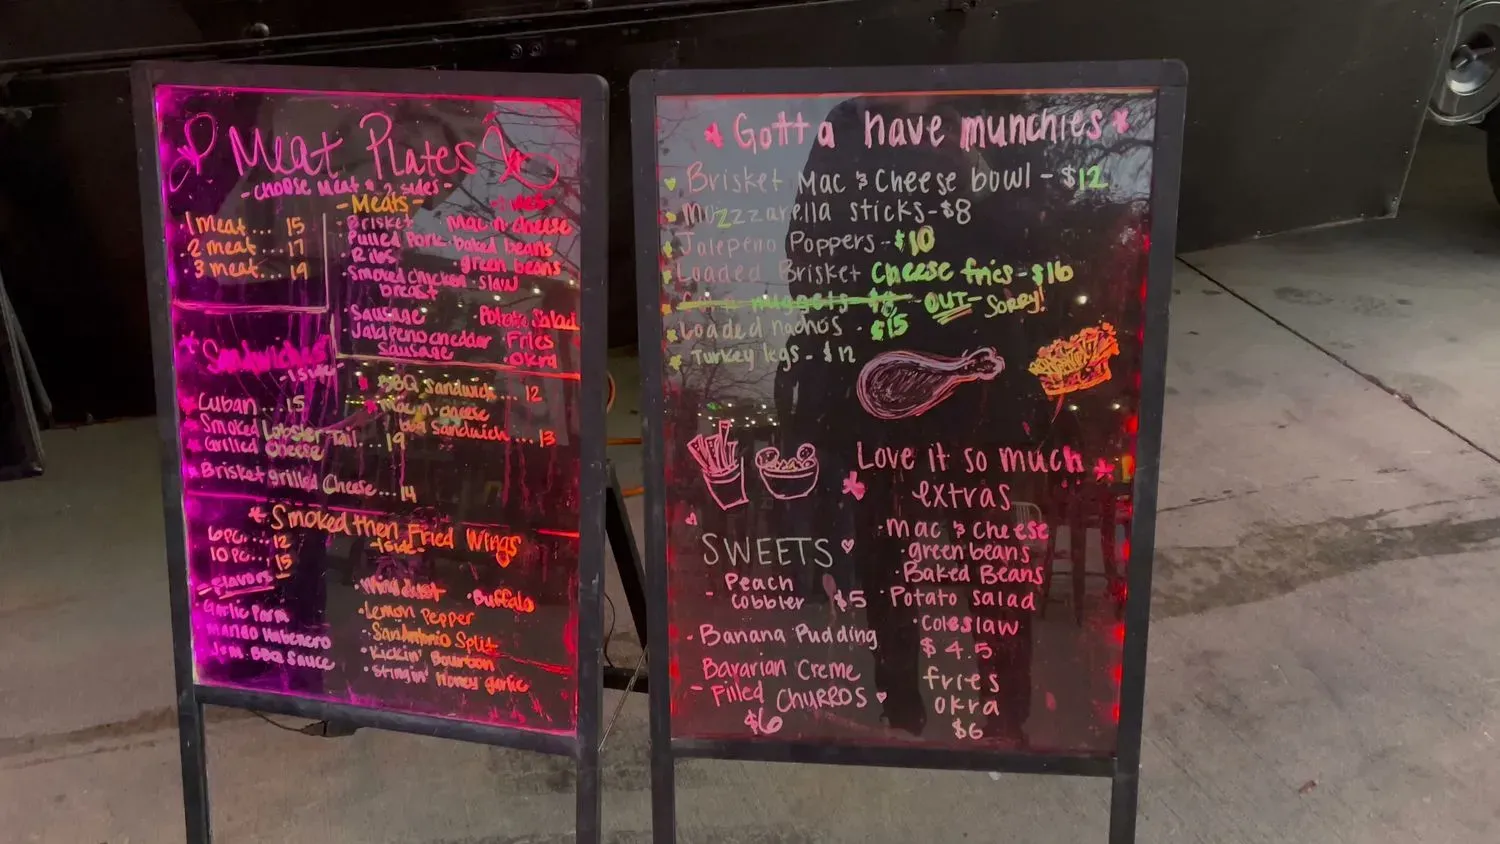 Meat Plates
- choose meat & 2 sides -
1 meat.... 15
2 meat... 17
3 meat... 19
- Meats -
· Brisket
· Pulled Pork
· Ribs
· Smoked chicken
breast
· Sausage
· Jalapeno cheddar
Sausage
Mac n cheese
· baked beans
green beans
· slaw
· Potato Salad
· Fries
· Okra
Sandwiches
- 1 side -
· Cuban... 15
· Smoked Lobster Tail... 19
Grilled Cheese
· Brisket grilled Cheese... 14
BBQ Sandwich... 12
Mac n cheese
BBQ Sandwich... 13
Smoked then Fried Wings
- 1 side -
6 pc.... 12
10 pc... 15
- Flavors -
· Garlic Parm
· Mango Habenero
· BBQ Sauce
· Buffalo
· Lemon Pepper
· San Antonio Split
· Kickin' Bourbon
· Stingin' Honey garlic
Gotta have munchies
Brisket Mac & Cheese bowl - $12
Mozzzarella sticks - $8
Jalepeno Poppers - $10
Loaded Brisket Cheese fries - $16
nuggets - $8 - OUT - Sorry!
Loaded nachos - $15
Turkey legs - $12
Love it so much
extras
· Mac & Cheese
· green beans
· Baked Beans
· Potato salad
· Coleslaw
$4.5
fries
okra
$6
SWEETS
- Peach
Cobbler $5
- Banana Pudding
Bavarian Creme
- Filled CHURROS
$6